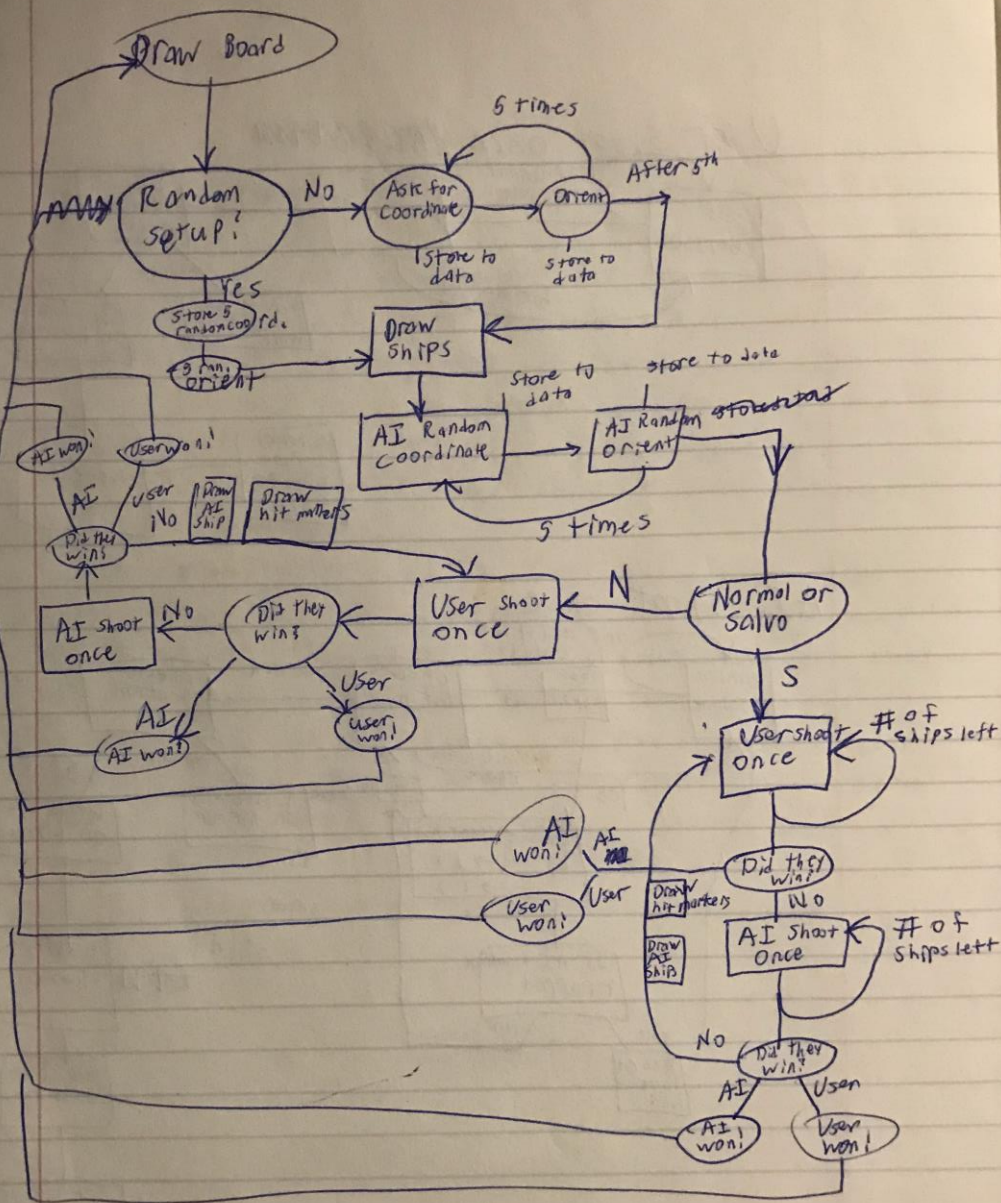 Draw Board
5 times
Random
setup?
No
Ask for
coordinate
Orient
After 5th
store to
data
store to
data
Yes
Store 5
random coord.
5 ran.
orient
Draw
ships
store to
data
store to data
AI Random
coordinate
AI Random
orient
5 times
AI won!
User won!
AI
User
No
Draw
AI
ship
Draw
hit markers
Did they
win?
AI shoot
once
No
Did they
win?
User shoot
once
N
Normal or
Salvo
S
AI
User
AI won!
User
won!
User shoot
once
# of
ships left
AI
won!
AI
User
won!
User
Did they
win?
Draw
hit markers
No
Draw
AI
ship
AI shoot
once
# of
ships left
No
Did they
win?
AI
User
AI
won!
User
won!